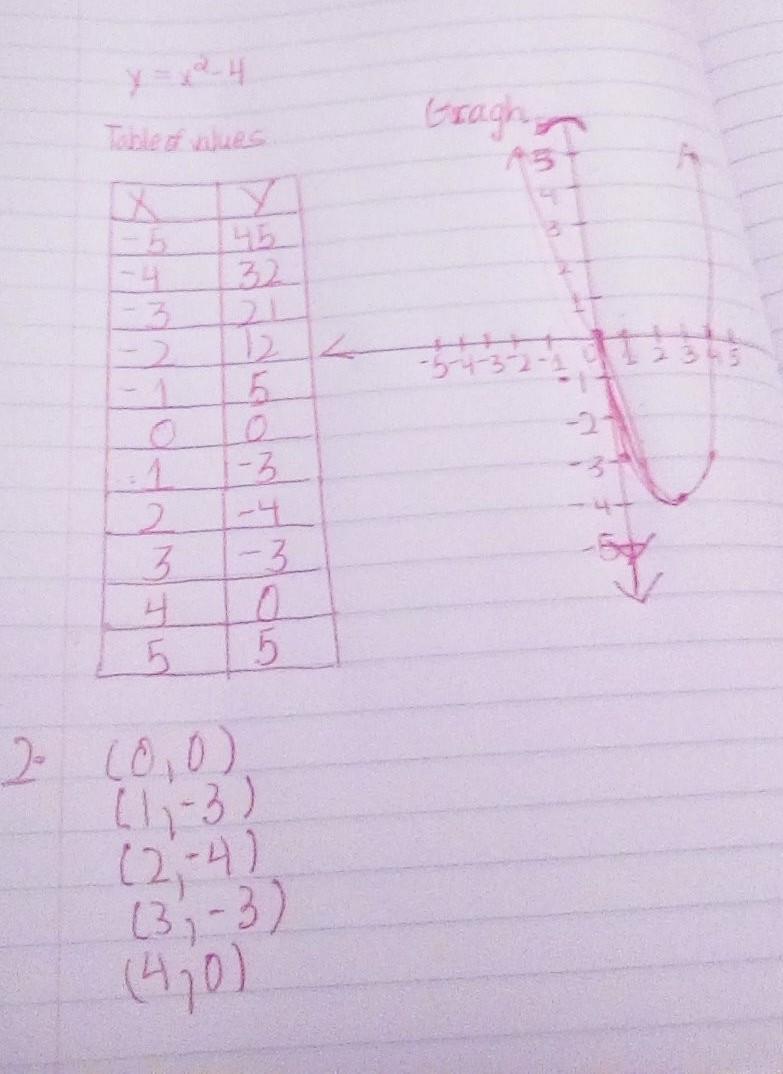 y = x²-4
Table of values
X Y
-5 45
-4 32
-3 21
-2 12
-1 5
0 0
1 -3
2 -4
3 -3
4 0
5 5
Gragh
5
4
3
2
1
-5 -4 -3 -2 -1 0 1 2 3 4 5
-1
-2
-3
-4
-5
2- (0,0)
(1,-3)
(2,-4)
(3,-3)
(4,0)